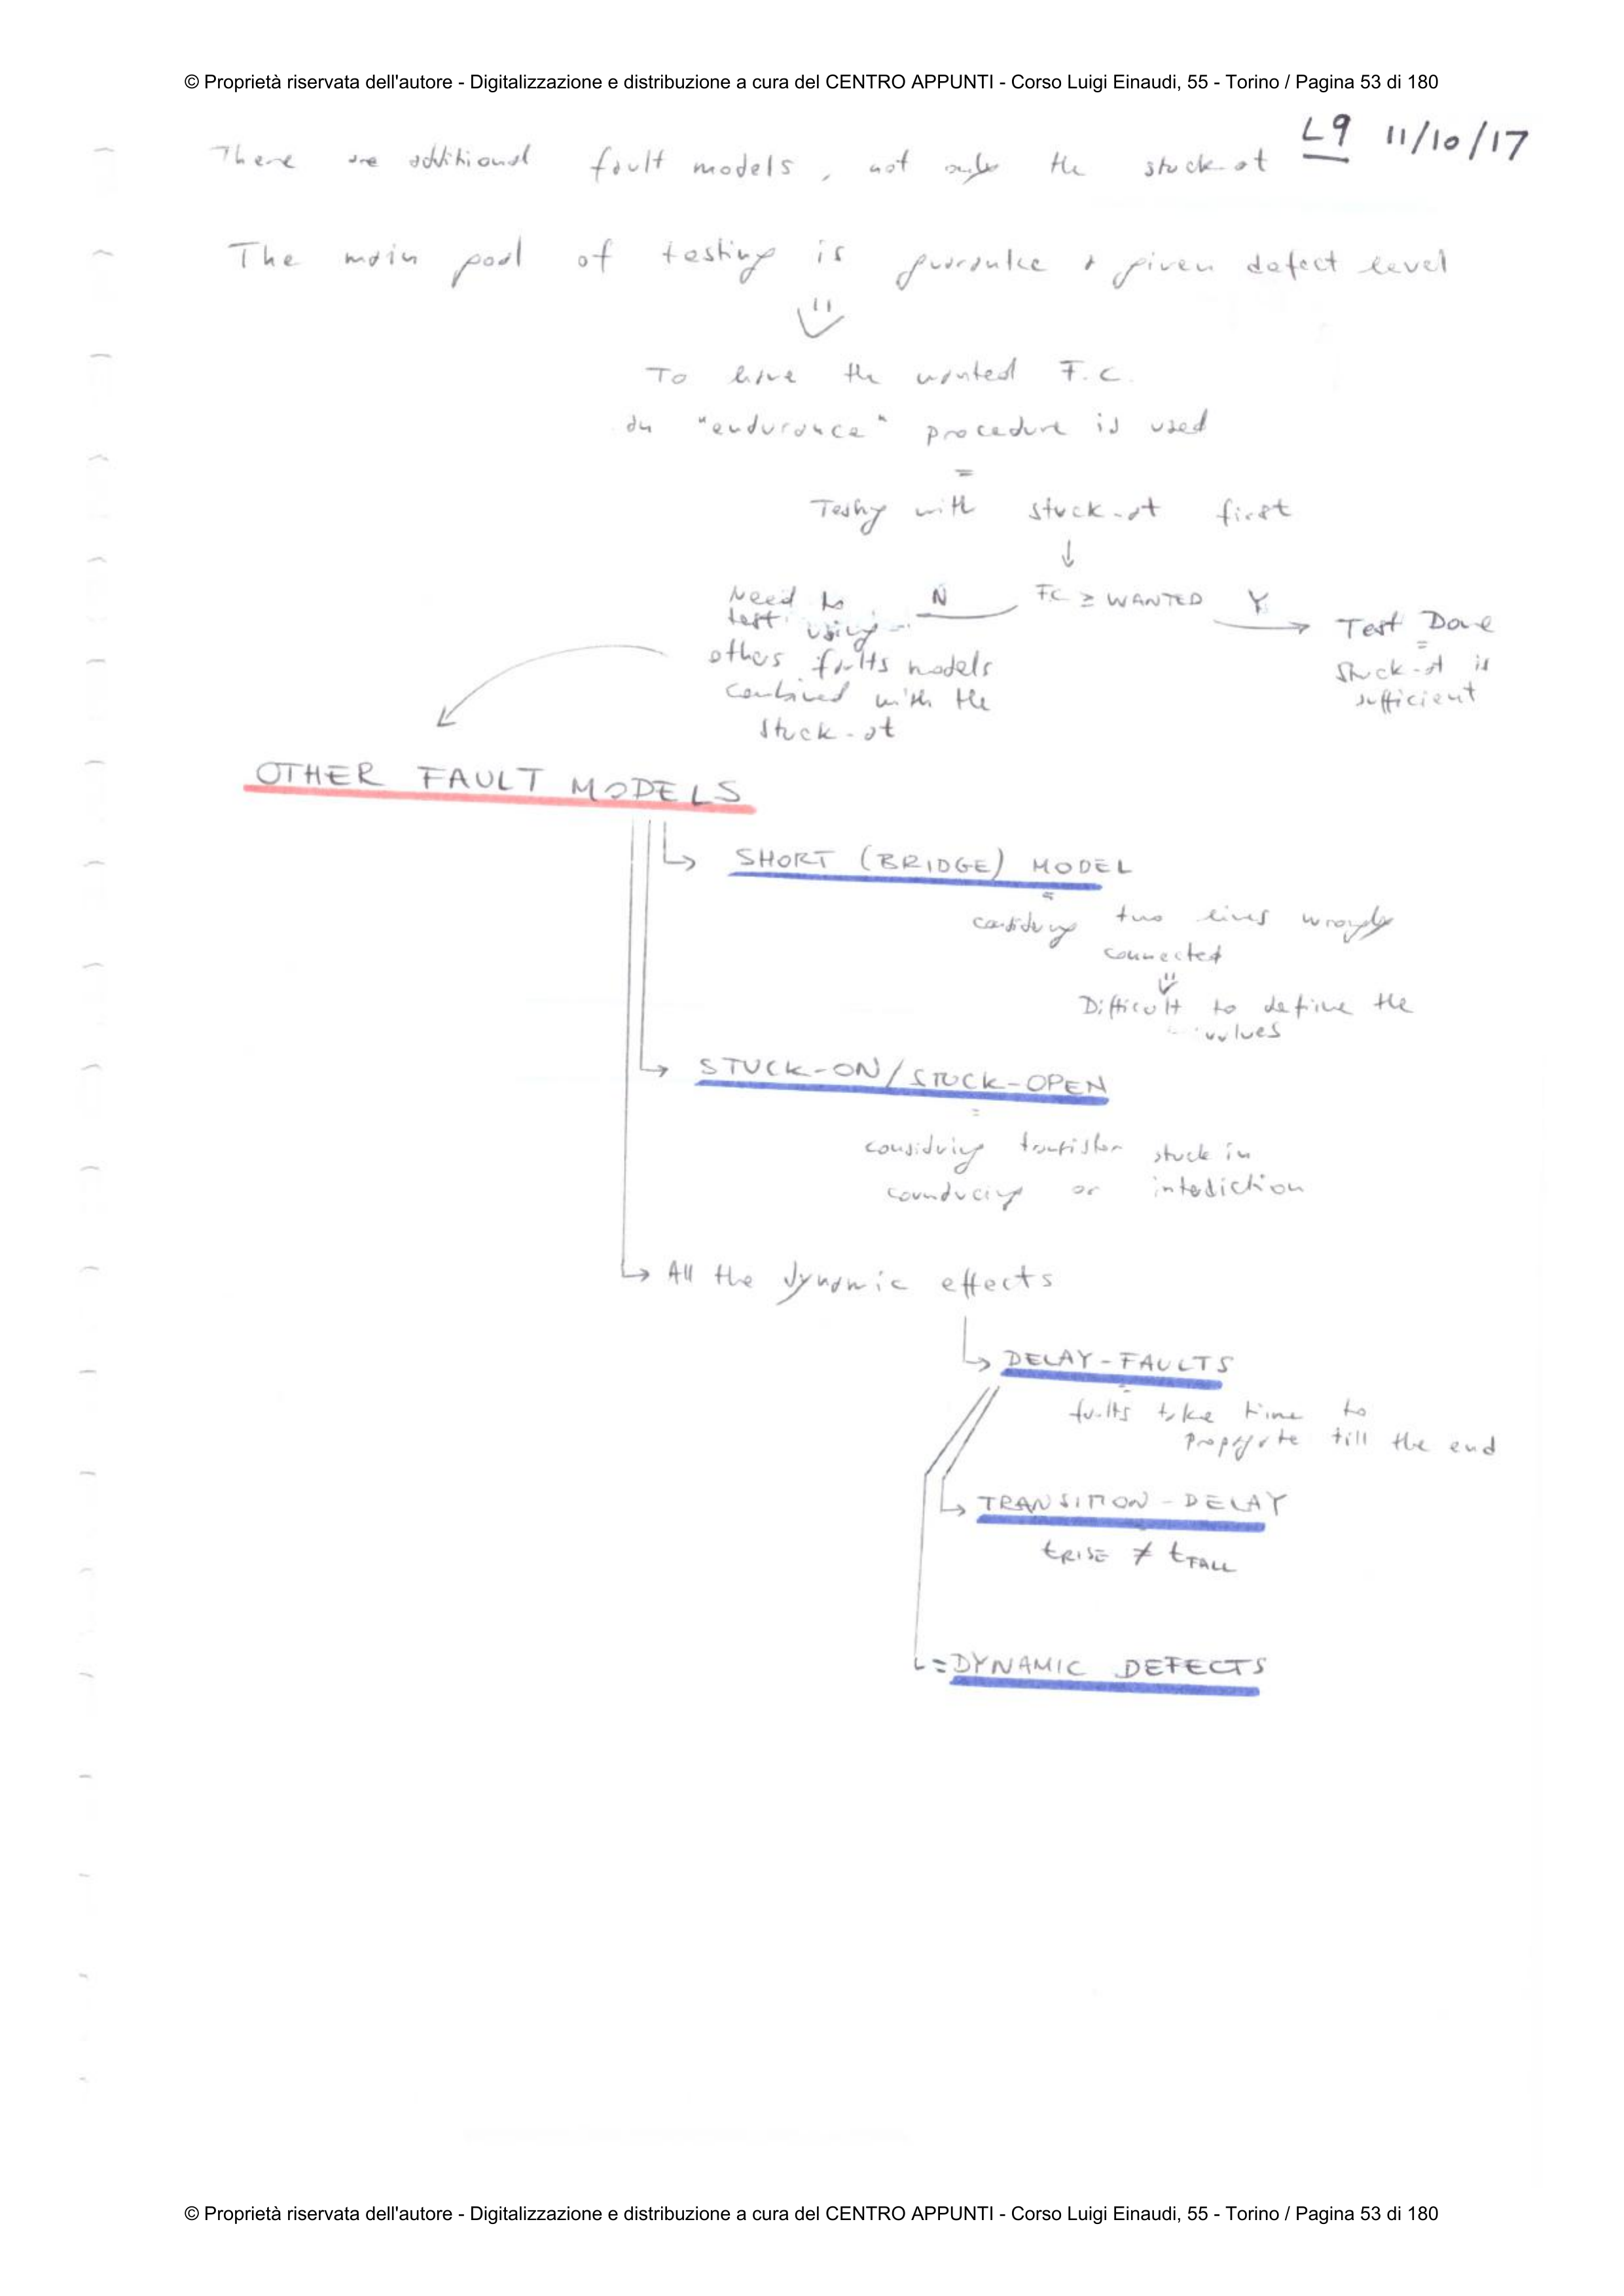 © Proprietà riservata dell'autore - Digitalizzazione e distribuzione a cura del CENTRO APPUNTI - Corso Luigi Einaudi, 55 - Torino / Pagina 53 di 180
L9 11/10/17
There are additional fault models, not only the stuck-at
The main goal of testing is guarantee a given defect level
To have the wanted F.C.
an "endurance" procedure is used
=
Testing with stuck-at first
↓
Need to
test using
others faults models
combined with the
stuck-at
N
FC ≥ WANTED
Y
Test Done
=
Stuck-at is
sufficient
OTHER FAULT MODELS
SHORT (BRIDGE) MODEL
=
considering two lines wrongly
connected
Difficult to define the
values
STUCK-ON/STUCK-OPEN
=
considering transistor stuck in
counducing or interdiction
All the dynamic effects
DELAY-FAULTS
=
faults take time to
propagate till the end
TRANSITION-DELAY
tRISE ≠ tFALL
= DYNAMIC DEFECTS
© Proprietà riservata dell'autore - Digitalizzazione e distribuzione a cura del CENTRO APPUNTI - Corso Luigi Einaudi, 55 - Torino / Pagina 53 di 180